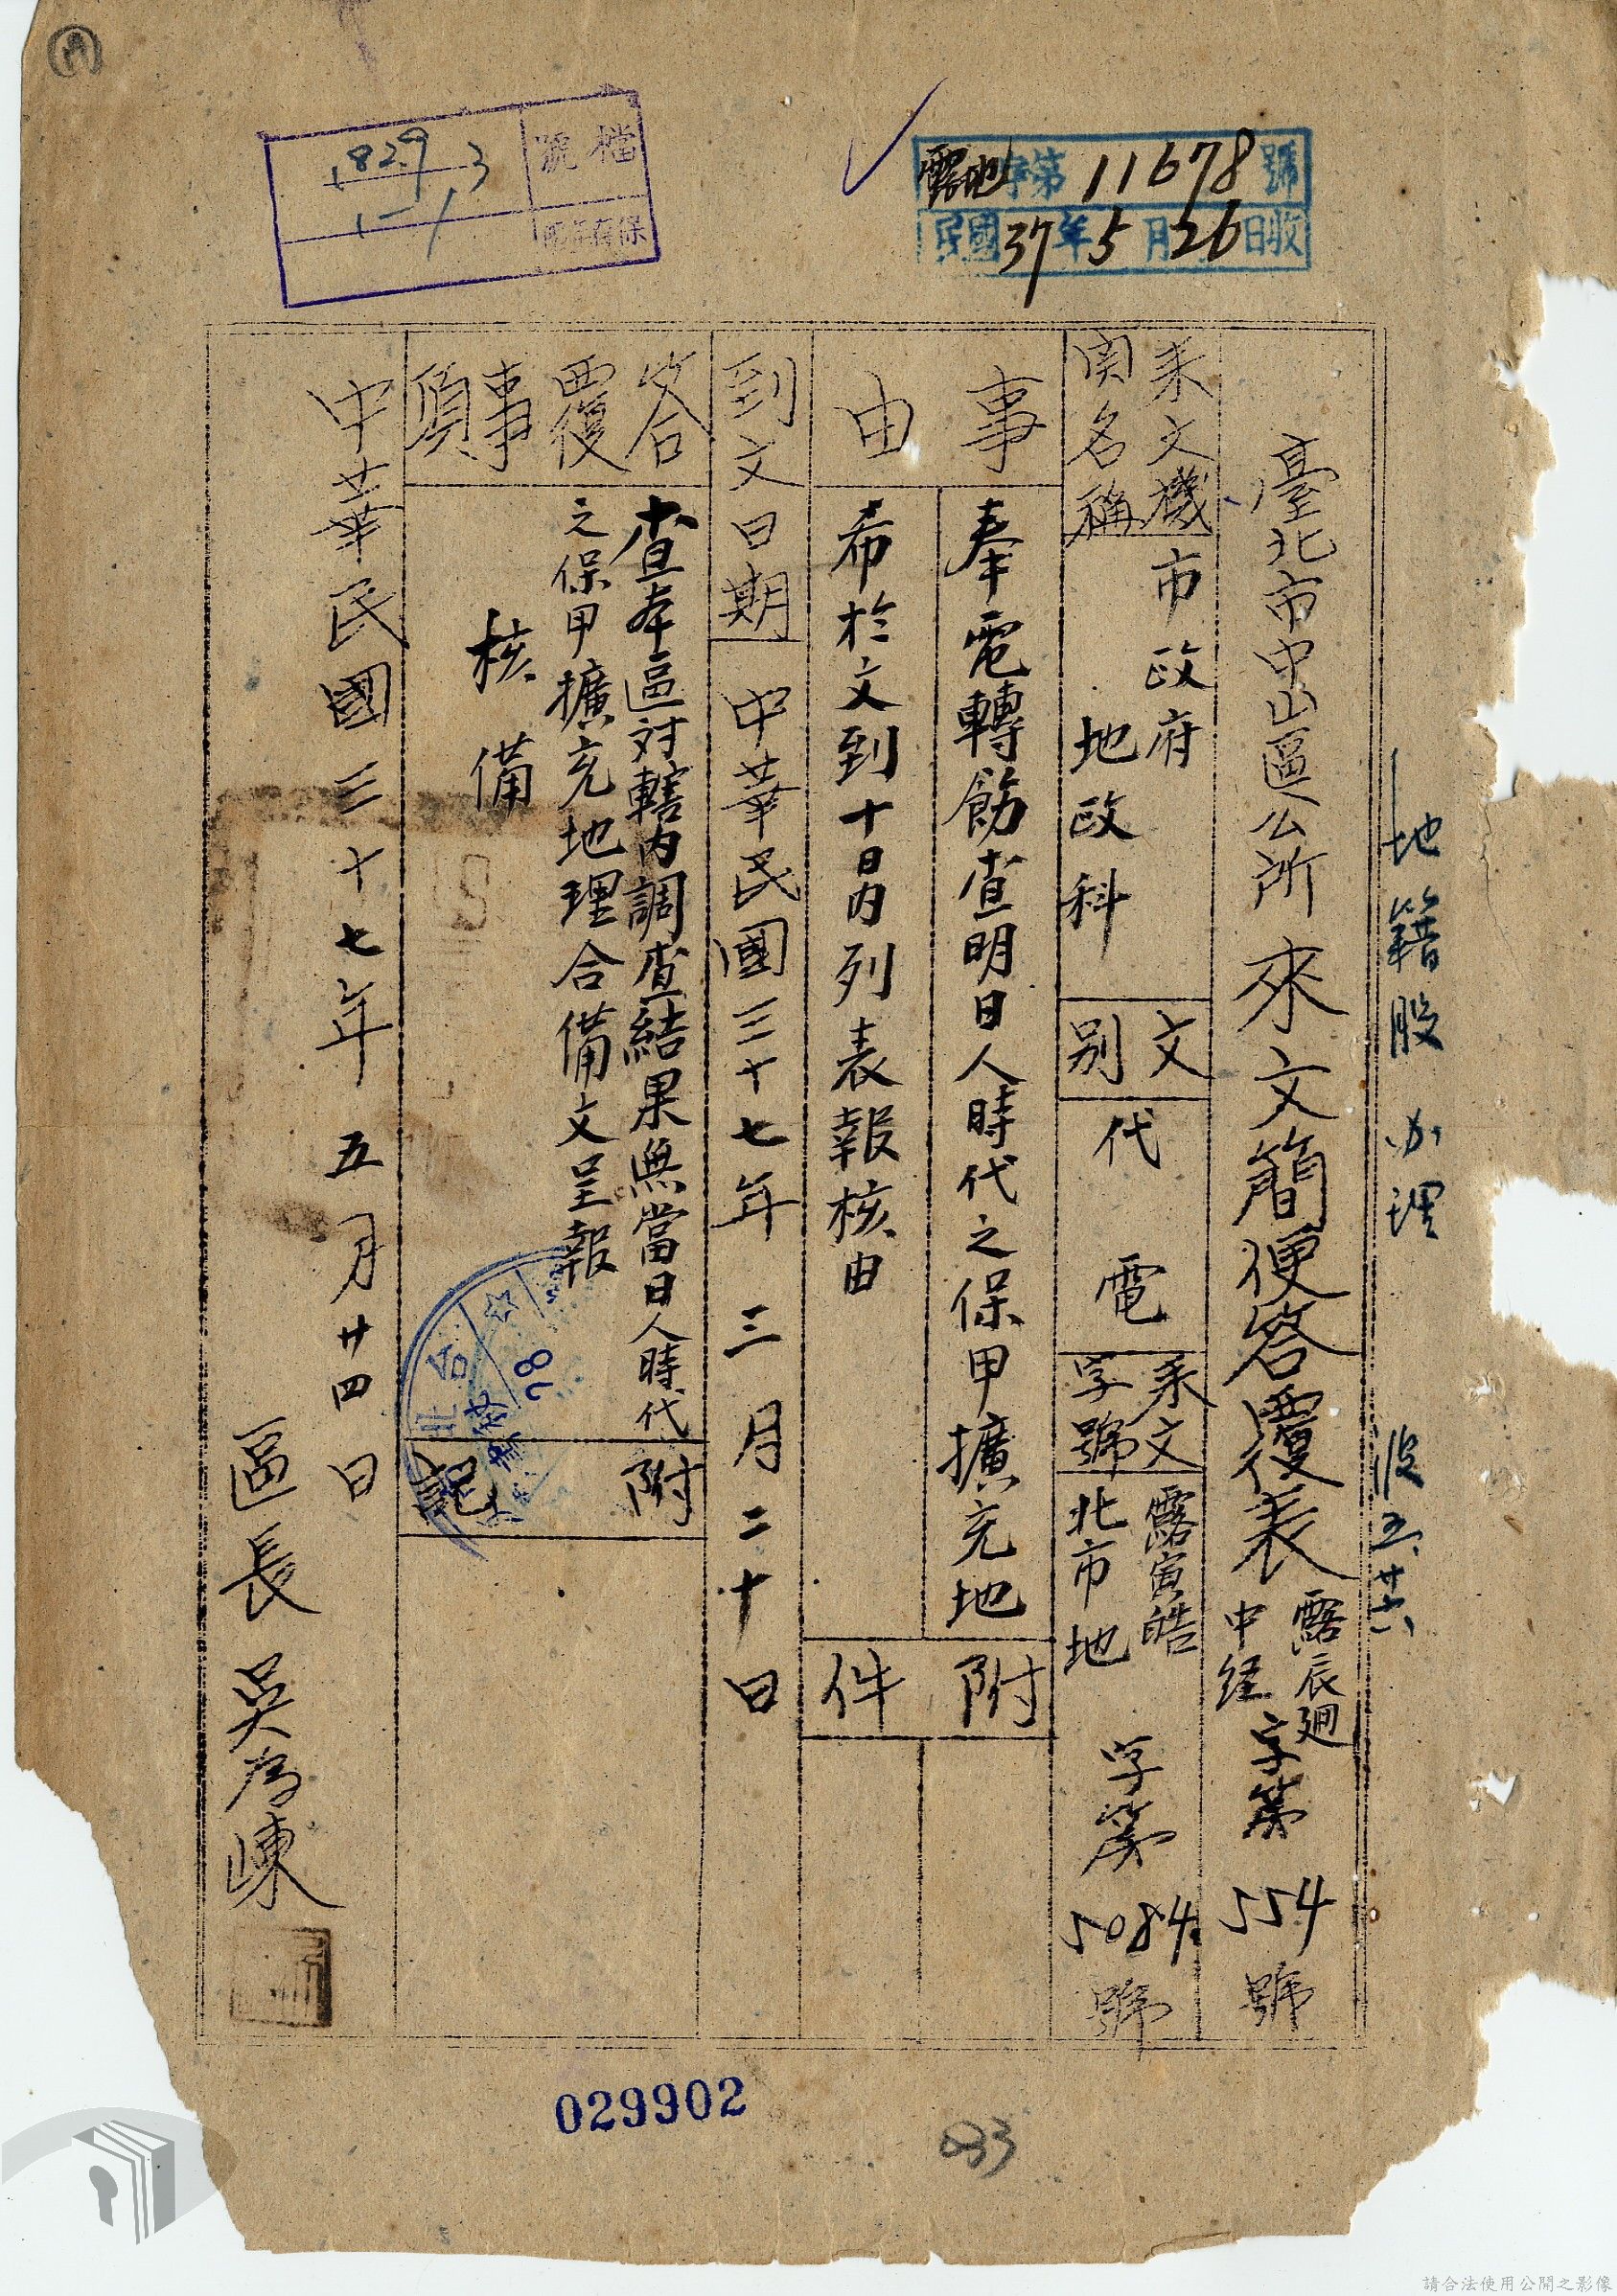 檔號
1829 3
保存年限
露地字第11678號
民國37年5月26日收
地籍股 办理
五、廿六
臺北市中山區公所來文簡便答覆表
露辰廻
中経字第554號
来文機関名稱
市政府
地政科
文別
代電
来文字號
露寅皓
北市地字第5084號
事由
奉電轉飭查明日人時代之保甲擴充地
希於文到十日內列表報核由
附件
到文日期
中華民國三十七年三月二十日
答覆事項
查本區对轄內調查結果無當日人時代
之保甲擴充地理合備文呈報
核備
附記
中華民國三十七年五月廿四日
區長吳
029902
033
請合法使用公開之影像